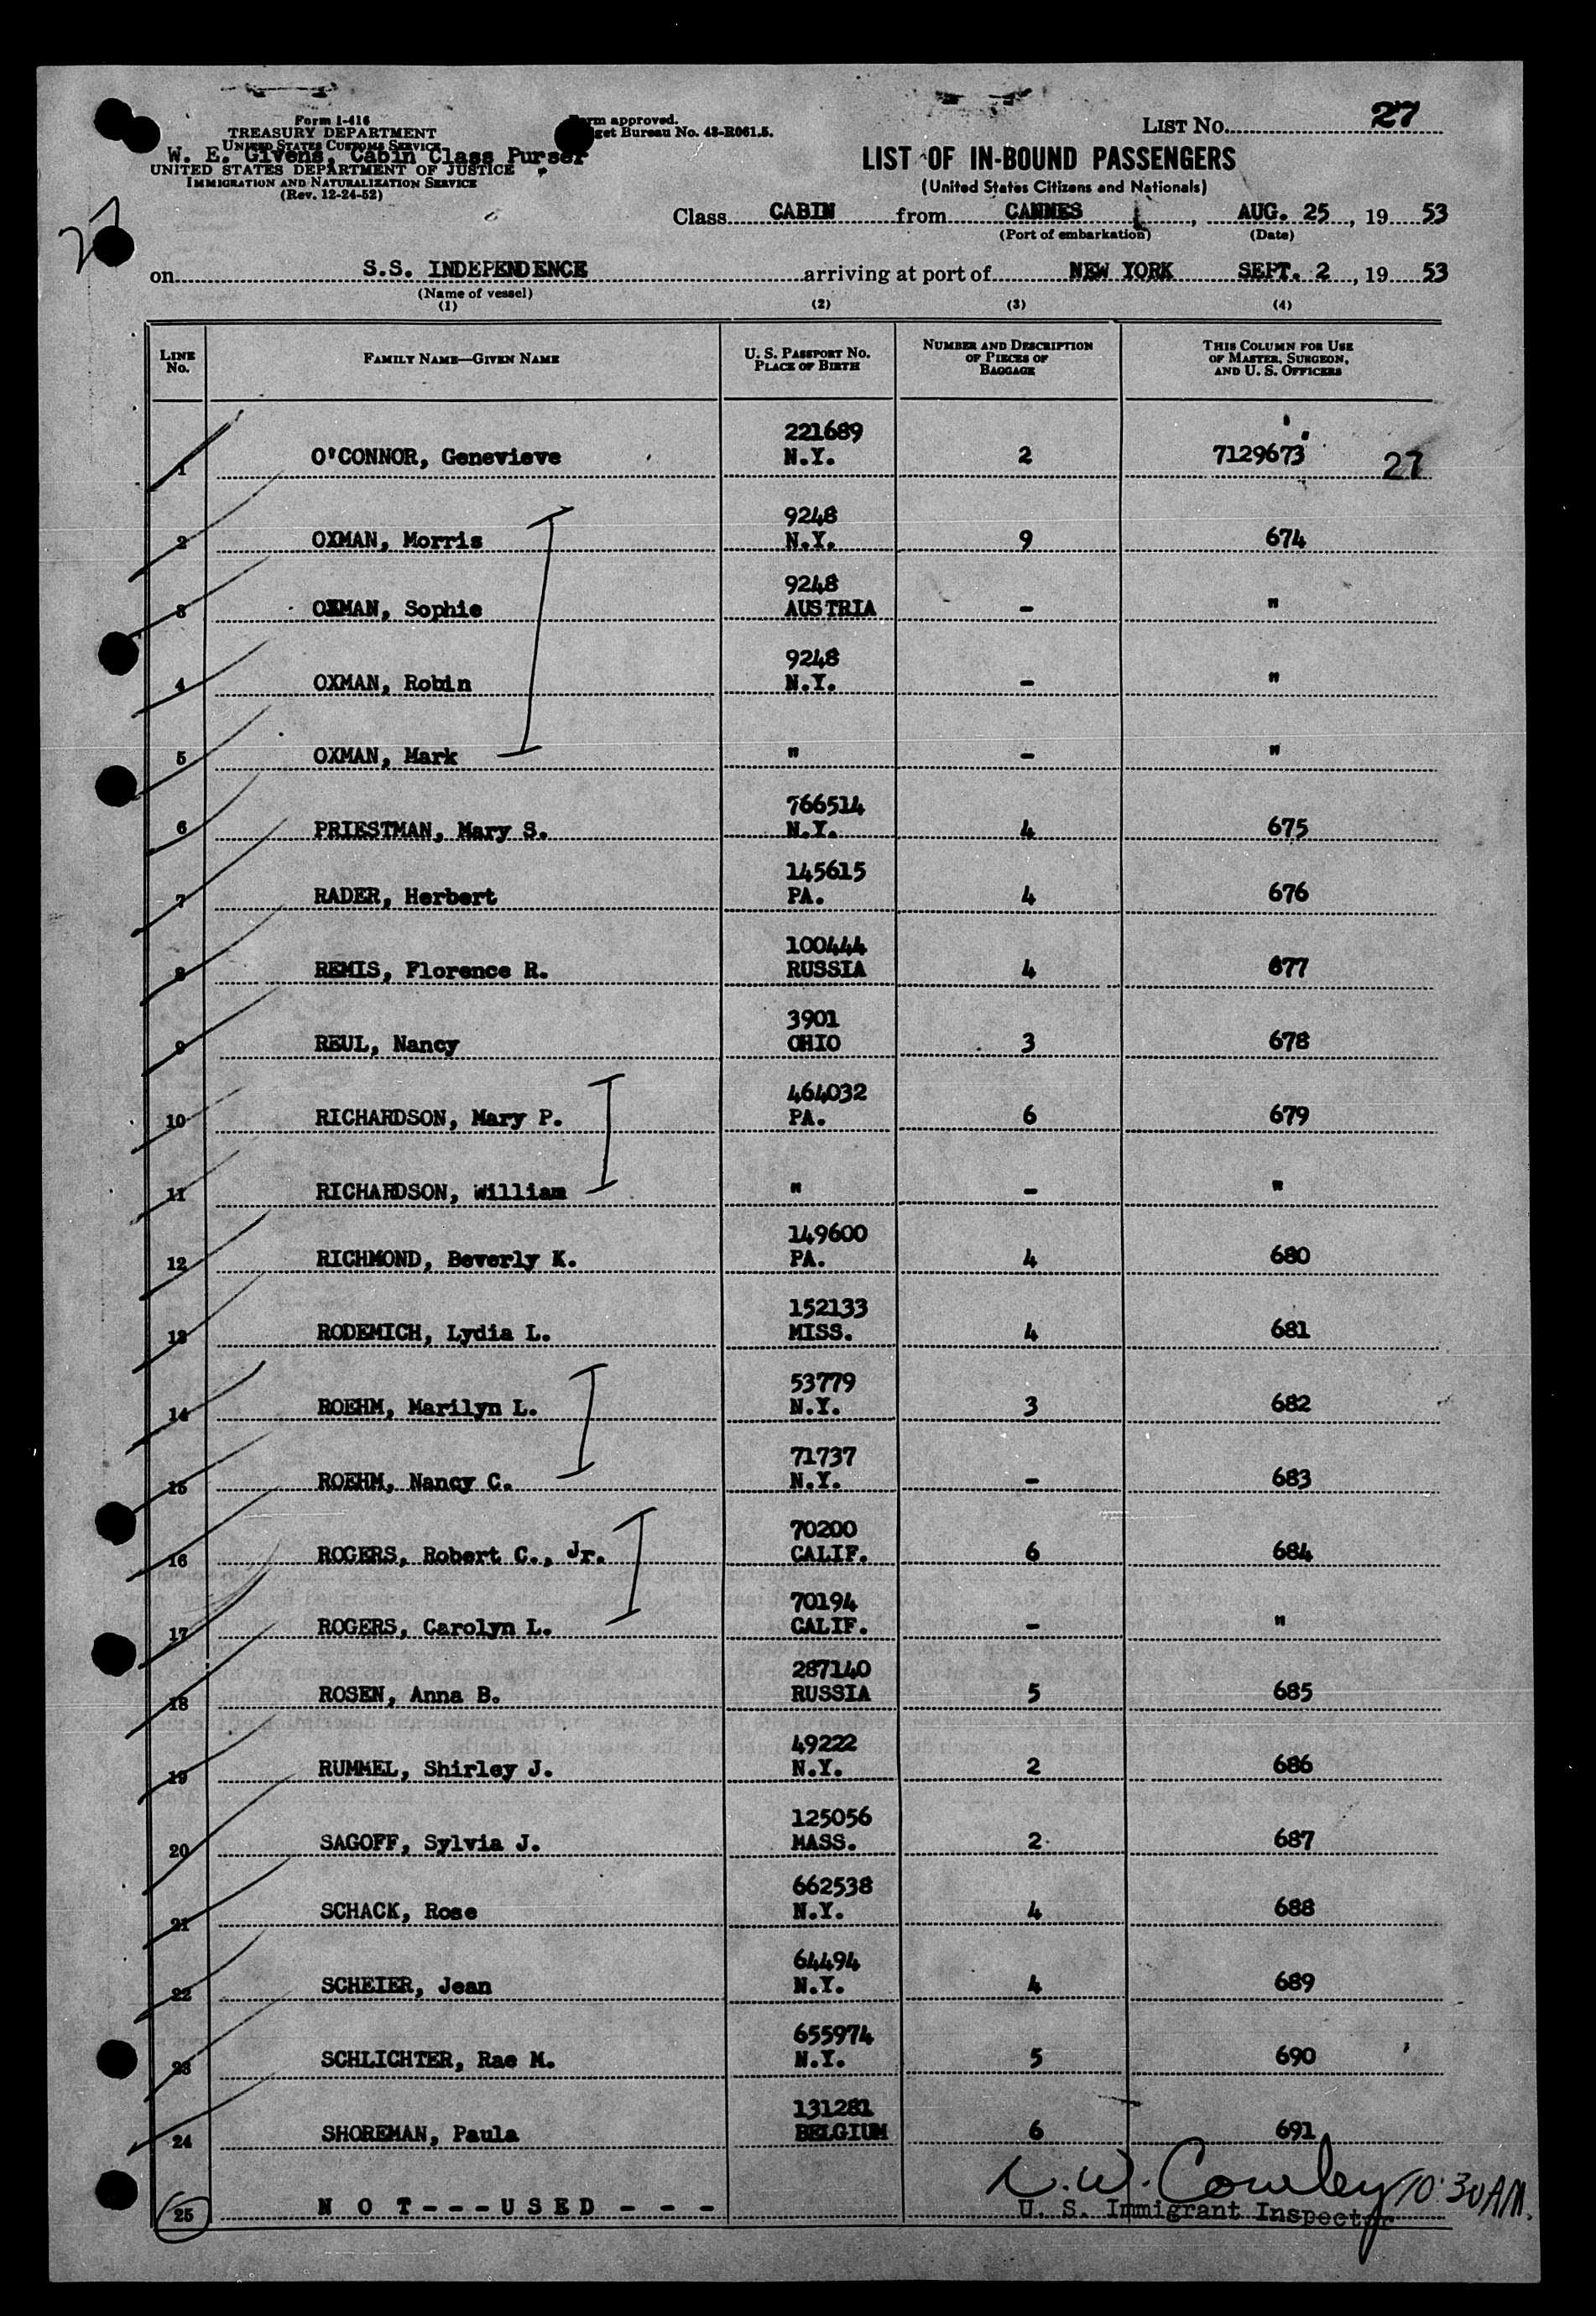 Form I-416
TREASURY DEPARTMENT
UNITED STATES CUSTOMS SERVICE
W. E. Givens, Cabin Class Purser
UNITED STATES DEPARTMENT OF JUSTICE
IMMIGRATION AND NATURALIZATION SERVICE
(Rev. 12-24-52)
Form approved.
Budget Bureau No. 43-R061.5.
LIST NO. 27
LIST OF IN-BOUND PASSENGERS
(United States Citizens and Nationals)
27
Class CABIN from CANNES, AUG. 25, 19 53
(Port of embarkation) (Date)
on S.S. INDEPENDENCE arriving at port of NEW YORK SEPT. 2, 19 53
(Name of vessel)
(1) (2) (3) (4)
LINE No. FAMILY NAME—GIVEN NAME U. S. PASSPORT NO. PLACE OF BIRTH NUMBER AND DESCRIPTION OF PIECES OF BAGGAGE THIS COLUMN FOR USE OF MASTER, SURGEON, AND U. S. OFFICERS
221689
1 O'CONNOR, Genevieve N.Y. 2 7129673 27
9248
2 OXMAN, Morris N.Y. 9 674
9248
3 OXMAN, Sophie AUSTRIA - "
9248
4 OXMAN, Robin N.Y. - "
5 OXMAN, Mark " - "
766514
6 PRIESTMAN, Mary S. N.Y. 4 675
145615
7 RADER, Herbert PA. 4 676
100444
8 REMIS, Florence R. RUSSIA 4 677
3901
9 REUL, Nancy OHIO 3 678
464032
10 RICHARDSON, Mary P. PA. 6 679
11 RICHARDSON, William " - "
149600
12 RICHMOND, Beverly K. PA. 4 680
152133
13 RODEMICH, Lydia L. MISS. 4 681
53779
14 ROEHM, Marilyn L. N.Y. 3 682
71737
15 ROEHM, Nancy C. N.Y. - 683
70200
16 ROGERS, Robert C., Jr. CALIF. 6 684
70194
17 ROGERS, Carolyn L. CALIF. - "
287140
18 ROSEN, Anna B. RUSSIA 5 685
49222
19 RUMMEL, Shirley J. N.Y. 2 686
125056
20 SAGOFF, Sylvia J. MASS. 2 687
662538
21 SCHACK, Rose N.Y. 4 688
64494
22 SCHEIER, Jean N.Y. 4 689
655974
23 SCHLICHTER, Rae M. N.Y. 5 690
131281
24 SHOREMAN, Paula BELGIUM 6 691
25 N O T - - - U S E D - - -
L. W. Cowley 10:30 AM.
U. S. Immigrant Inspector